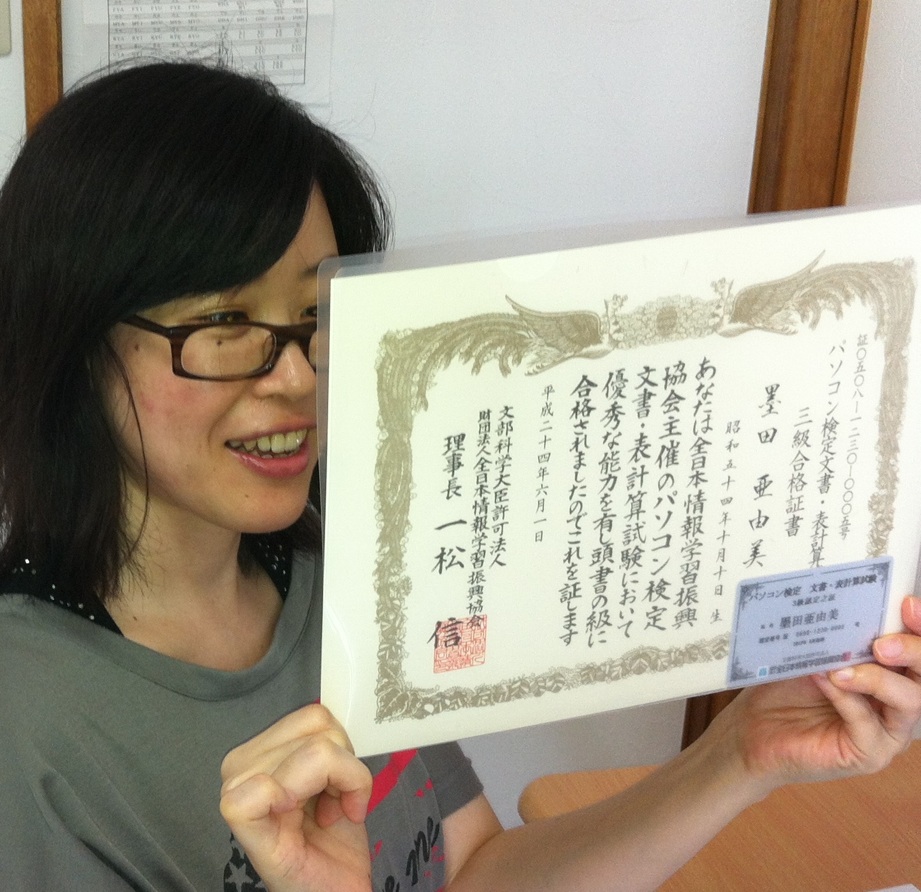 証〇五〇八-一二三〇-〇〇〇五号
パソコン検定文書・表計算
三級合格証書
墨田 亜由美
昭和五十四年十月十日 生
あなたは全日本情報学習振興
協会主催のパソコン検定
文書・表計算試験において
優秀な能力を有し頭書の級に
合格されましたのでこれを証します
平成二十四年六月一日
文部科学大臣許可法人
財団法人全日本情報学習振興協会
理事長 一松 信
パソコン検定 文書・表計算試験
3級認定之証
氏名 墨田亜由美
me